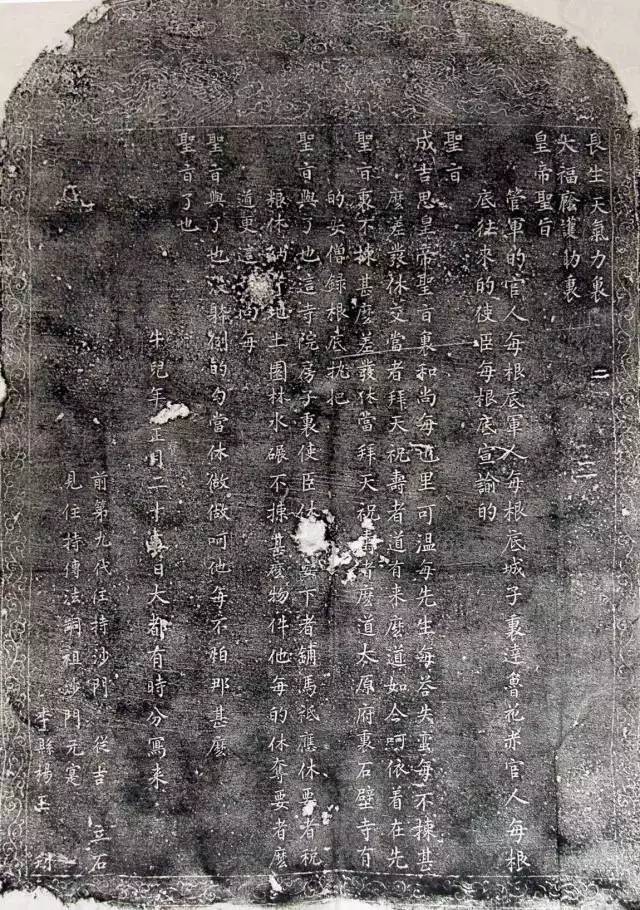 長生天氣力裏
大福廕護助裏
皇帝聖旨
管軍的官人每根底軍人每根底城子裏達魯花赤官人每根
底往來的使臣每根底宣諭的
聖旨
成吉思皇帝聖旨裏和尚每也里可溫每先生每荅失蠻每不揀甚
麼差發休交當者拜天祝壽者道有來麼道如今呵依着在先
聖旨裏不揀甚麼差發休當拜天祝壽者麼道太原府裏石壁寺有
的安僧錄根底執把
聖旨與了也這寺院房子裏使臣休安下者鋪馬祗應休要者稅
粮休納者地土園林水碾不揀甚麼物件他每的休奪要者麼
道更這和尚每
聖旨與了也沒躰例的勾當休做做呵他每不怕那甚麼
聖旨了也
牛兒年正月二十日大都有時分寫來
前第九代住持沙門 從吉 立石
見住持傳法嗣祖沙門元
李縣楊玉